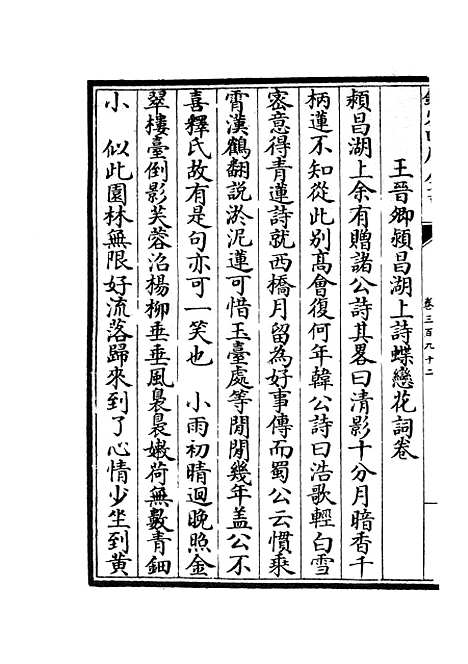 卷三百九十二
王晉卿潁昌湖上詩蝶戀花詞卷
潁昌湖上余有贈諸公詩其畧曰清影十分月暗香千
柄蓮不知從此別高會復何年韓公詩曰浩歌輕白雪
密意得青蓮詩就西橋月留為好事傳而蜀公云慣乘
霄漢鶴翻說淤泥蓮可惜玉臺處等閒閒幾年盖公不
喜釋氏故有是句亦可一笑也　小雨初晴迴晚照金
翠樓臺倒影芙蓉沼楊柳垂垂風裊裊嫩荷無數青鈿
小　似此園林無限好流落歸來到了心情少坐到黃